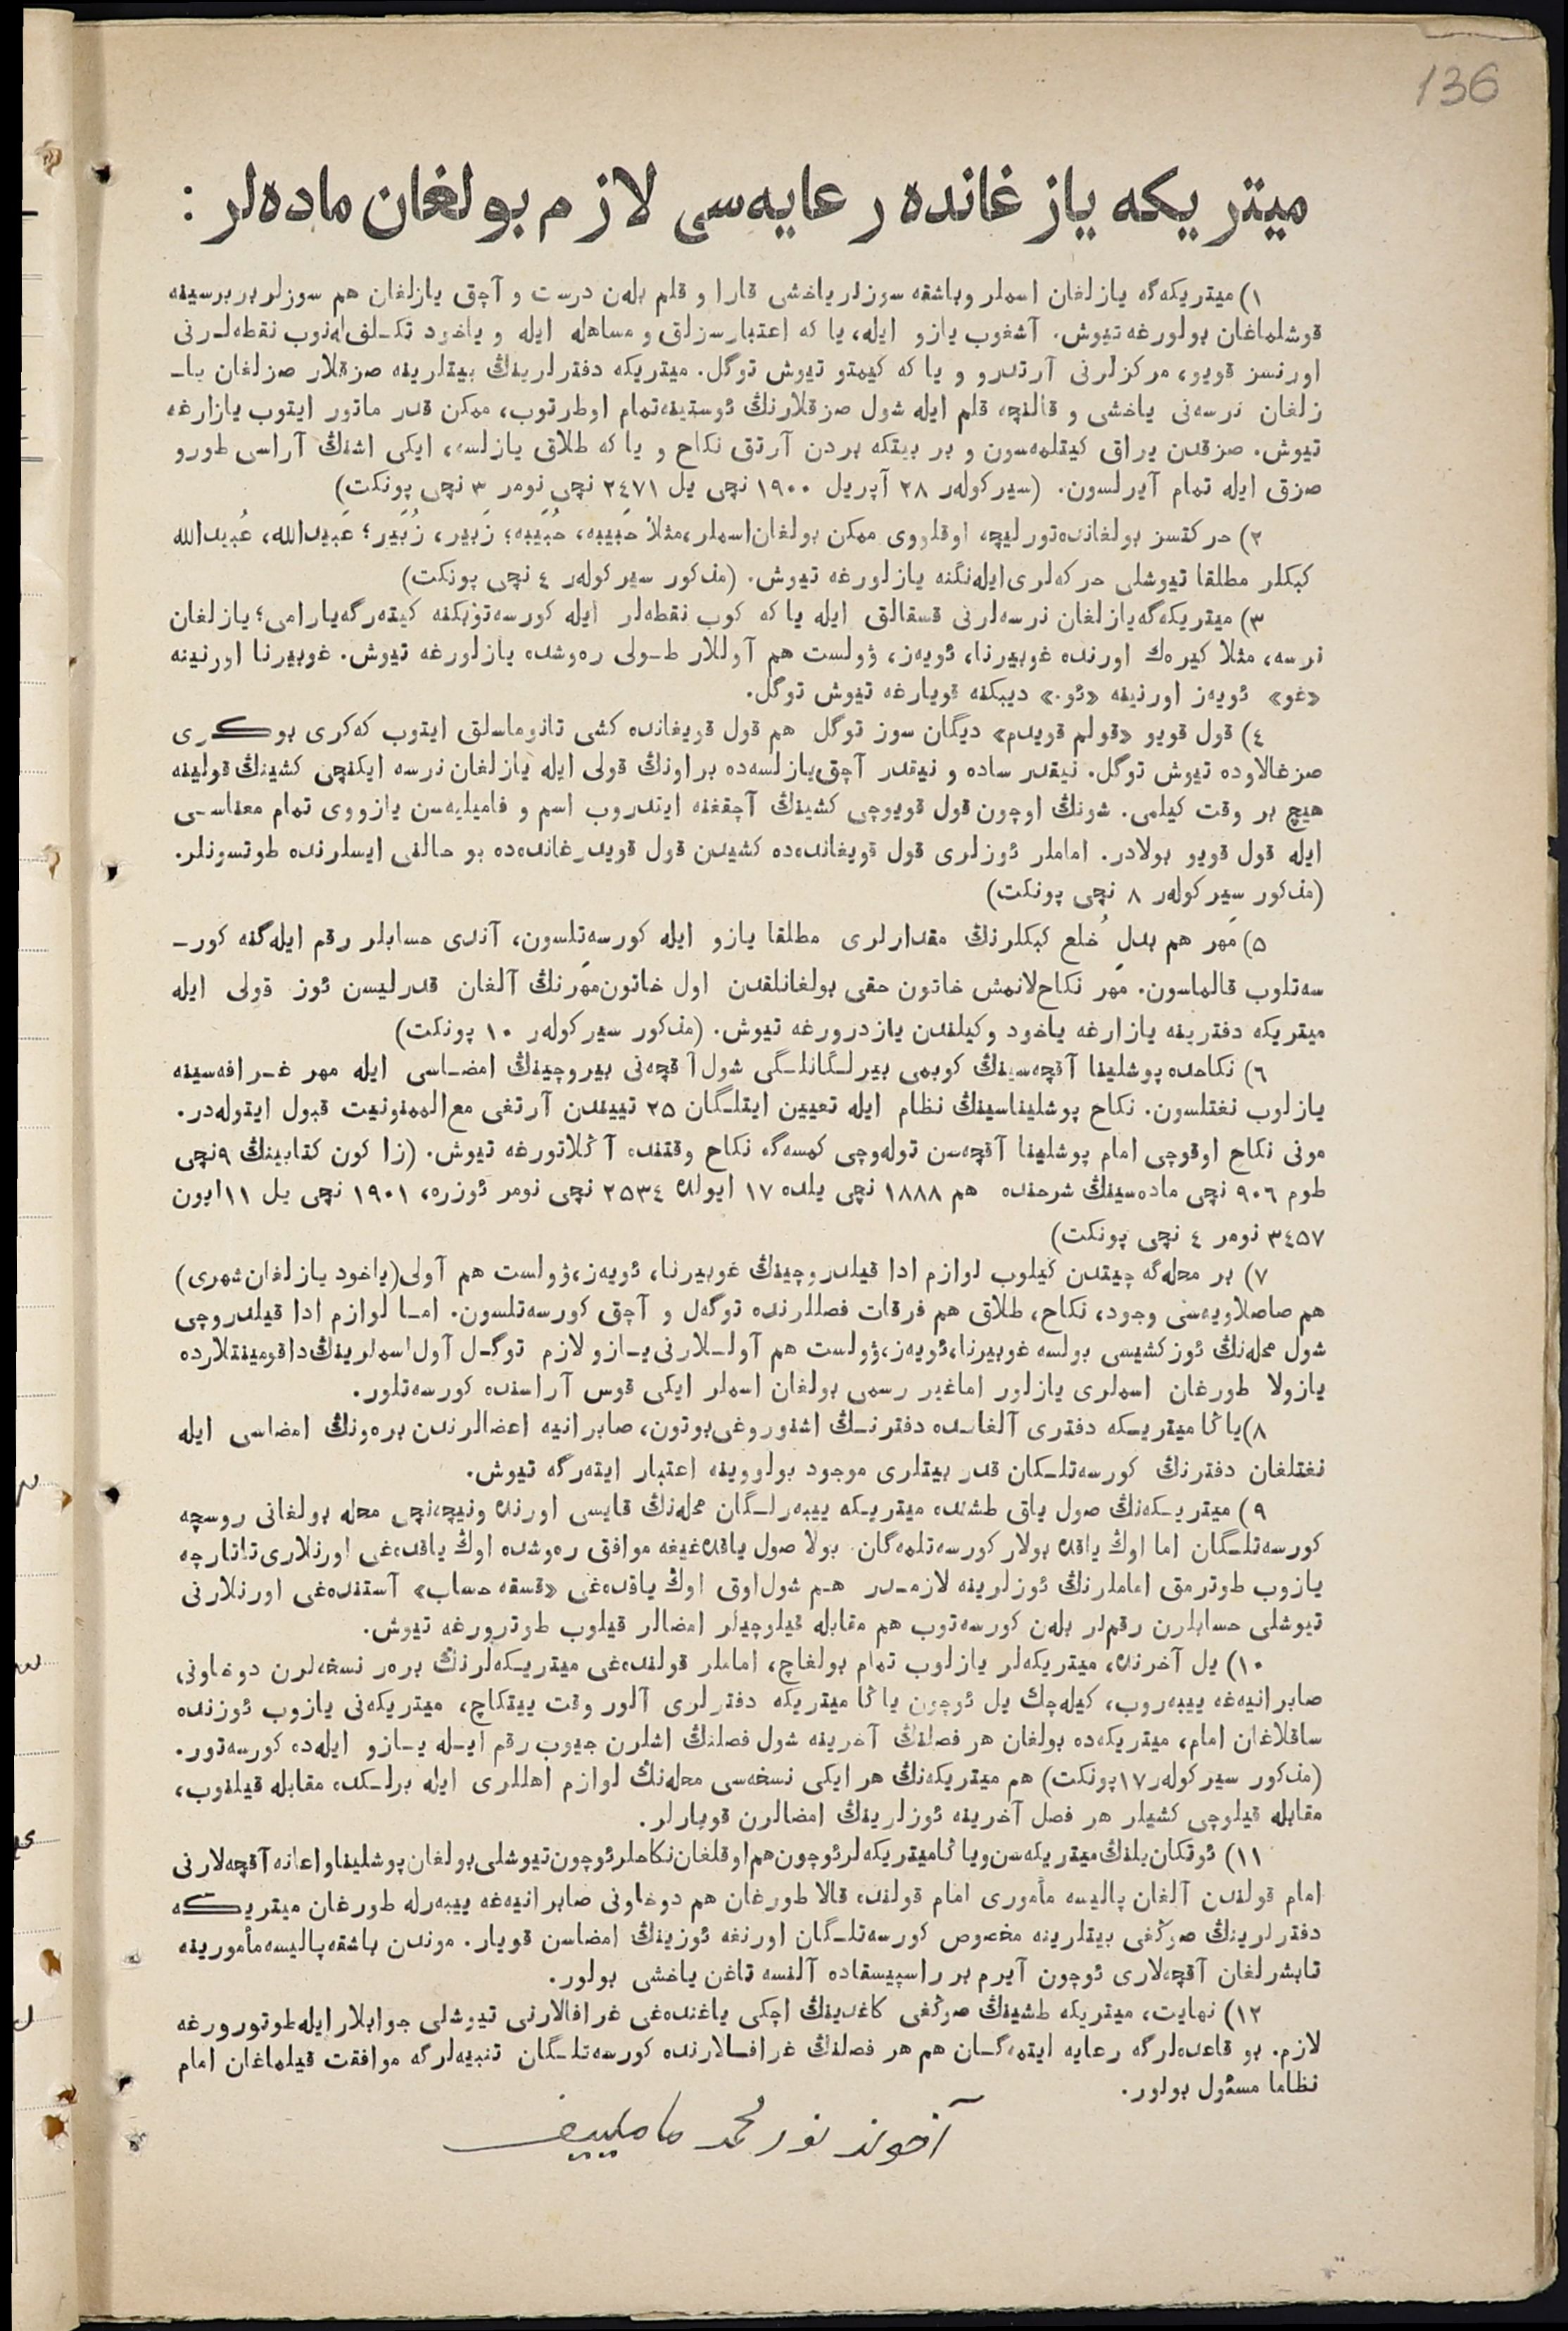 136
میتریكه یازغانده رعایه‌سی لازم بولغان ماده‌لر :
۱) میتریكه‌گه یازلغان اسملر وباشقه سوزلر یاخشی قارا و قلم بله‌ن درست و آچق یازلغان هم سوزلر بربرسینه
قوشلماغان بولورغه تیوش. آشغوب یازو ایله، یا كه اعتبارسزلق و مساهله ایله و یاخود تكـلف‌له‌نوب نقطه‌لـرنی
اورنسز قویو، مركزلرنی آرتدرو و یا كه كیمتو تیوش توگل. میتریكه دفترلرینڭ بیتلرینه صزقلار صزلغان یا-
زلغان نرسه‌نی یاخشی و قالنچه قلم ایله شول صزقلارنڭ ئوستینه‌تمام اوطرتوب، ممكن قدر ماتور ایتوب یازارغه
تیوش. صزقدن یراق كیتلمه‌سون و بر بیتكه بردن آرتق نكاح و یا كه طلاق یازلسه، ایكی اشنڭ آراسی طورو
صزق ایله تمام آیرلسون. (سیركوله‌ر ۲۸ آپریل ۱۹۰۰ نچی یل ۲٤۷۱ نچی نومر ۳ نچی پونكت)
۲) حركتسز بولغانده‌تورلیچه اوقلووی ممكن بولغان‌اسملر،مثلا حَبیبه، حُبَیبه؛ زَبیر، زُبَیر؛ عَبیدالله، عُبیدالله
كبكلر مطلقا تیوشلی حركه‌لری‌ایله‌نگنه یازلورغه تیوش. (مذكور سیركوله‌ر ٤ نچی پونكت)
۳) میتریكه‌گه‌یازلغان نرسه‌لرنی قسقالق ایله یا كه كوب نقطه‌لر ایله كورسه‌توبكنه كیته‌رگه‌یارامی؛ یازلغان
نرسه، مثلا كیره‌ك اورنده غوبیرنا، ئویه‌ز، ۋولست هم آوللار طـولی ره‌وشده یازلورغه تیوش. غوبیرنا اورنینه
«غو» ئویه‌ز اورنینه «ئو.» دیبكنه قویارغه تیوش توگل.
٤) قول قویو «قولم قویدم» دیگان سوز توگل هم قول قویغانده كشی تانوماسلق ایتوب كه‌كری بوكـری
صزغالاوده تیوش توگل. نیقدر ساده و نیقدر آچق‌یازلسه‌ده براونڭ قولی ایله یازلغان نرسه ایكنچی كشینڭ قولینه
هیچ بر وقت كیلمی. شونڭ اوچون قول قویوچی كشینڭ آچقغنه ایتدروب اسم و فامیلیه‌سن یازووی تمام معناسـی
ایله قول قویو بولادر. اماملر ئوزلری قول قویغانده‌ده كشیدن قول قویدرغانده‌ده بو حالنی ایسلرنده طوتسونلر.
(مذكور سیركوله‌ر ۸ نچی پونكت)
۵) مَهر هم بدلِ خُلع كبكلرنڭ مقدارلری مطلقا یازو ایله كورسه‌تلسون، آندی حسابلر رقم ایله‌گنه كور-
سه‌تلوب قالماسون. مَهر نكاح‌لانمش خاتون حقی بولغانلقدن اول خاتون‌مَهرنڭ آلغان قدرلیسن ئوز قولی ایله
میتریكه دفترینه یازارغه یاخود وكیلندن یازدرورغه تیوش. (مذكور سیركوله‌ر ۱۰ پونكت)
٦) نكاحده پوشلینا آقچه‌سینڭ كوبمی بیرلـگانلـگی شول آقچه‌نی بیروچینڭ امضـاسی ایله مهر غـرافه‌سینه
یازلوب نغتلسون. نكاح پوشلیناسینڭ نظام ایله تعیین ایتلـگان ۲۵ تییندن آرتغی مع‌الممنونیت قبول ایتوله‌در.
مونی نكاح اوقوچی امام پوشلینا آقچه‌سن توله‌وچی كمسه‌گه نكاح وقتنده آڭلاتورغه تیوش. (زا كون كتابینڭ ۹نچی
طوم ۹۰٦ نچی ماده‌سینڭ شرحنده هم ۱۸۸۸ نچی یلده ۱۷ ایولده ۲۵۳٤ نچی نومر ئوزره، ۱۹۰۱ نچی یل ۱۱ایون
۳٤۵۷ نومر ٤ نچی پونكت)
۷) بر محله‌گه چیتدن كیلوب لوازم ادا قیلدروچینڭ غوبیرنا، ئویه‌ز،ۋولست هم آولی(یاخود یازلغان‌شهری)
هم صاصلاویه‌سی وجود، نكاح، طلاق هم فرقات فصللرنده توگه‌ل و آچق كورسه‌تلسون. امـا لوازم ادا قیلدروچی
شول محله‌نڭ ئوزكشیسی بولسه غوبیرنا،ئویه‌ز،ۋولست هم آولـلارنی‌یـازو لازم توگـل آول‌اسملرینڭ‌داقومینتلارده
یازولا طورغان اسملری یازلور اماغیر رسمی بولغان اسملر ایكی قوس آراسنده كورسه‌تلور.
۸)یاڭا میتریـكه دفتری آلغانده دفترنـڭ اشنوروغی‌بوتون، صابرانیه اعضالرندن بره‌ونڭ امضاسی ایله
نغتلغان دفترنڭ كورسه‌تلـكان قدر بیتلری موجود بولووینه اعتبار ایته‌رگه تیوش.
۹) میتریـكه‌نڭ صول یاق طشنده میتریـكه ییبه‌رلـگان محله‌نڭ قایسی اورنده ونیچه‌نچی محله بولغانی روسچه
كورسه‌تلـگان اما اوڭ یاقده بولار كورسه‌تلمه‌گان. بولا صول یاقده‌غیغه موافق ره‌وشده اوڭ یاقده‌غی اورنلاری‌تاتارچه
یازوب طوترمق اماملرنڭ ئوزلرینه لازمـدر هـم شول‌اوق اوڭ یاقده‌غی «قسقه حساب» آستنده‌غی اورنلارنی
تیوشلی حسابلرن رقم‌لر بله‌ن كورسه‌توب هم مقابله قیلوچیلر امضالر قیلوب طوترورغه تیوش.
۱۰) یل آخرنده، میتریكه‌لر یازلوب تمام بولغاچ، اماملر قولنده‌غی میتریـكه‌لرنڭ بره‌ر نسخه‌لرن دوخاونی
صابرانیه‌غه ییبه‌روب، كیله‌چك یل ئوچون یاڭا میتریكه دفترلری آلور وقت ییتكاچ، میتریكه‌نی یازوب ئوزنده
ساقلاغان امام، میتریكه‌ده بولغان هر فصلنڭ آخرینه شول فصلنڭ اشلرن جیوب رقم ایـله یـازو ایله‌ده كورسه‌تور.
(مذكور سیركوله‌ر۱۷پونكت) هم میتریكه‌نڭ هر ایكی نسخه‌سی محله‌نڭ لوازم اهللری ایله برلـكده مقابله قیلنوب،
مقابله قیلوچی كشیلر هر فصل آخرینه ئوزلرینڭ امضالرن قویارلر.
۱۱) ئوتكان‌یلنڭ‌میتریكه‌سن‌ویاڭامیتریكه‌لرئوچون‌هم‌اوقلغان‌نكاحلرئوچون‌تیوشلی‌بولغان‌پوشلیناواعانه‌آقچه‌لارنی
امام قولندن آلغان پالیسه مأموری امام قولنده قالا طورغان هم دوخاونی صابرانیه‌غه ییبه‌رله طورغان میتریـكه
دفترلرینڭ صوڭغی بیتلرینه مخصوص كورسه‌تلـگان اورنغه ئوزینڭ امضاسن قویار. موندن باشقه‌پالیسه‌مأمورینه
تابشرلغان آقچه‌لاری ئوچون آیرم بر راسپیسقاده آلنسه تاغن یاخشی بولور.
۱۲) نهایت، میتریكه طشینڭ صوڭغی كاغدینڭ اچكی یاغنده‌غی غرافالارنی تیوشلی جوابلارایله‌طوتورورغه
لازم. بو قاعده‌لرگه رعایه ایتمه‌گـان هم هر فصلنڭ غرافـالارنده كورسه‌تلـگان تنبیه‌لرگه موافقت قیلماغان امام
نظاما مسئول بولور.
آخوند نورمحمد ماملییف